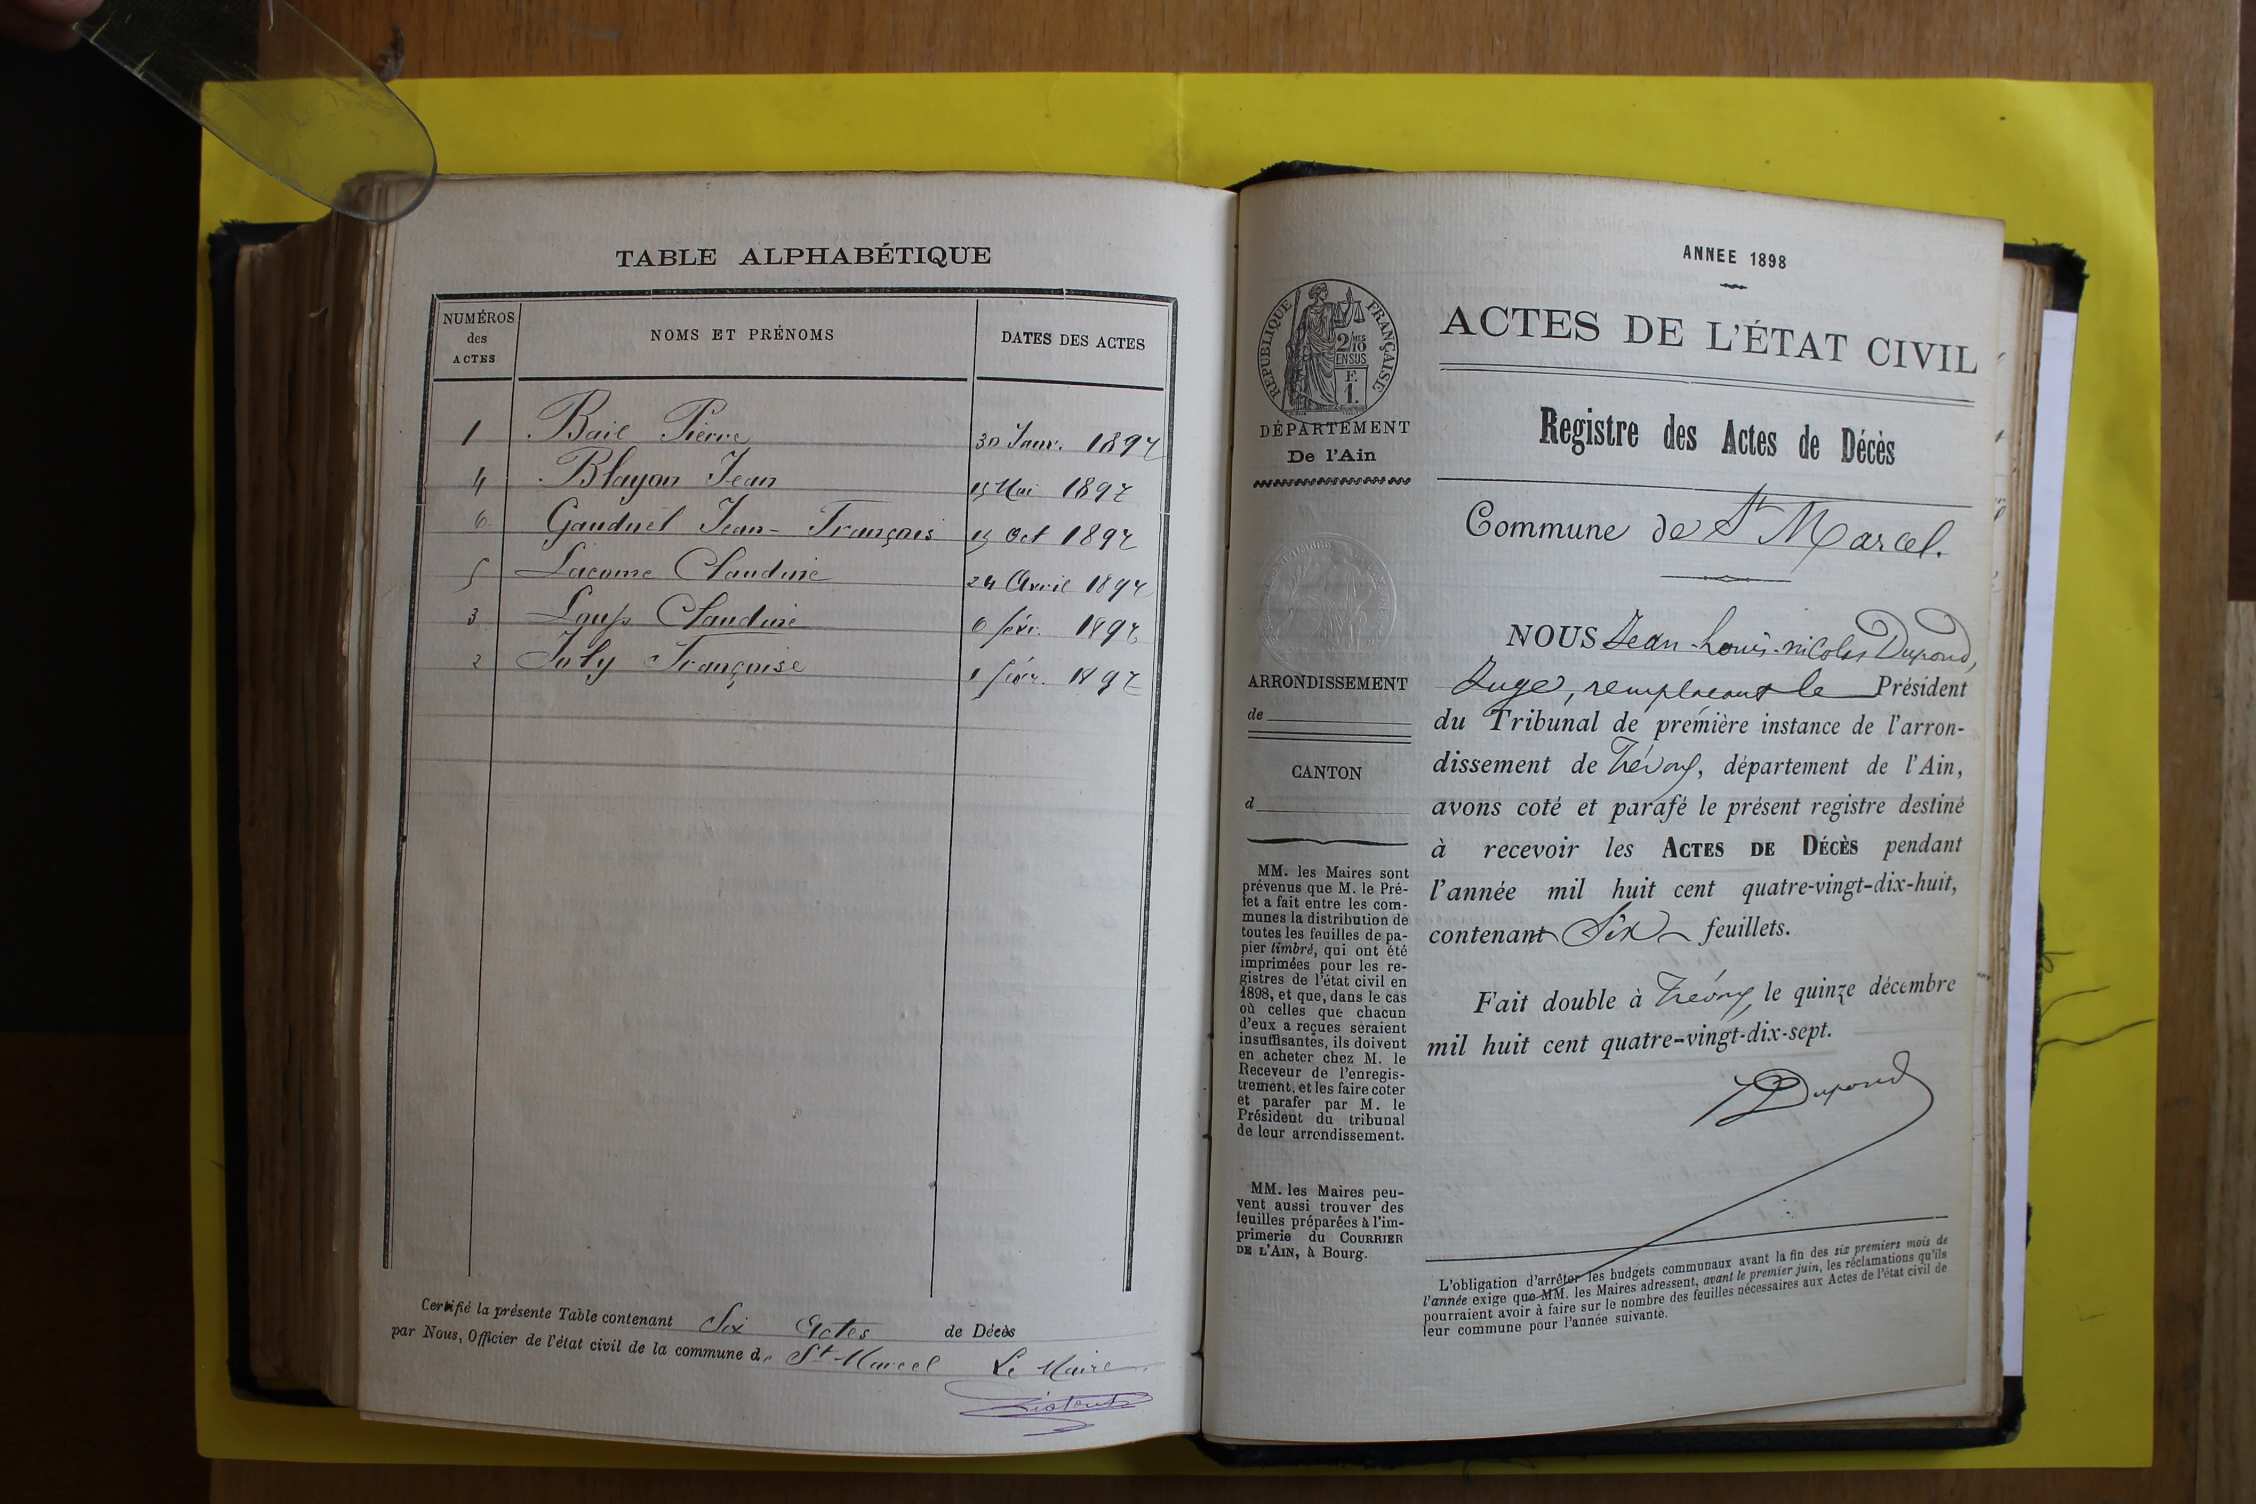 TABLE ALPHABÉTIQUE
NUMÉROS des ACTES
NOMS ET PRÉNOMS
DATES DES ACTES
1 Bail Pierre 30 Janv. 1897
4 Blayon Jean 15 Mai 1897
6 Gauduel Jean-François 15 Oct 1897
5 Lacome Claudine 24 Avril 1897
3 Loup Claudine 6 févr. 1897
2 Joly Françoise 1 févr. 1897
Certifié la présente Table contenant Six Actes de Décès
par Nous, Officier de l'état civil de la commune de St Marcel Le Maire
RÉPUBLIQUE FRANÇAISE
2/10 MES
EN SUS
F.
1.
DÉPARTEMENT
De l'Ain
ARRONDISSEMENT
de
CANTON
d
MM. les Maires sont
prévenus que M. le Pré-
fet a fait entre les com-
munes la distribution de
toutes les feuilles de pa-
pier timbré, qui ont été
imprimées pour les re-
gistres de l'état civil en
1898, et que, dans le cas
où celles que chacun
d'eux a reçues seraient
insuffisantes, ils doivent
en acheter chez M. le
Receveur de l'enregis-
trement, et les faire coter
et parafer par M. le
Président du tribunal
de leur arrondissement.
MM. les Maires peu-
vent aussi trouver des
feuilles préparées à l'im-
primerie du COURRIER
DE L'AIN, à Bourg.
ANNEE 1898
ACTES DE L'ÉTAT CIVIL
Registre des Actes de Décès
Commune de St Marcel.
NOUS Jean-Louis-Nicolas Dupond,
Juge, remplaçant le Président
du Tribunal de première instance de l'arron-
dissement de Trévoux, département de l'Ain,
avons coté et parafé le présent registre destiné
à recevoir les ACTES DE DÉCÈS pendant
l'année mil huit cent quatre-vingt-dix-huit,
contenant Six feuillets.
Fait double à Trévoux, le quinze décembre
mil huit cent quatre-vingt-dix-sept.
Dupond
L'obligation d'arrêter les budgets communaux avant la fin des six premiers mois de
l'année exige que MM. les Maires adressent, avant le premier juin, les réclamations qu'ils
pourraient avoir à faire sur le nombre des feuilles nécessaires aux Actes de l'état civil de
leur commune pour l'année suivante.